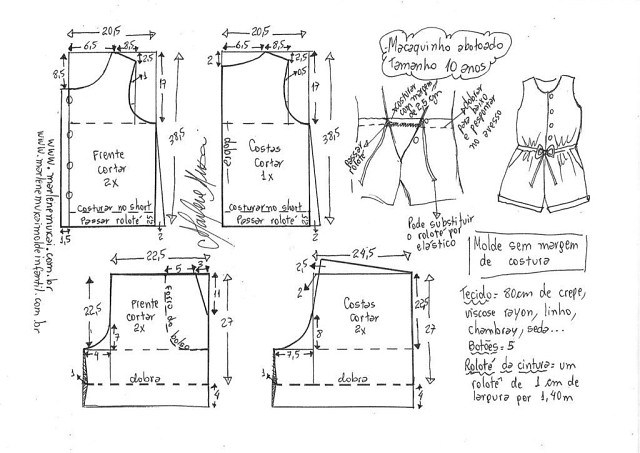 20,5
6,5
8,5
2,5
8,5
1
17
38,5
Frente
cortar
2x
Costurar no short
Passar roloté
2,5
1,5
2
20,5
6,5
8,5
2
2,5
0,5
17
38,5
dobra
Costas
Cortar
1x
Costurar no short
Passar roloté
2,5
2
www.marlenemukai.com.br
www.marlenemukaimoldeinfantil.com.br
Macaquinho abotoado
Tamanho 10 anos
costurar
com margem
de 2,5 cm
dobrar
para baixo
e pespontar
no avesso
Passar
roloté
Pode substituir
o roloté por
elástico
Molde sem margem
de costura
Tecido= 80cm de crepe,
viscose rayon, linho,
chambray, seda...
Botões= 5
Roloté da cintura= um
roloté de 1 cm de
largura por 1,40m
22,5
5
3
22,5
11
27
Frente
cortar
2x
Fundo do
bolso
7
4
1
dobra
4
24,5
2,5
2
Costas
cortar
2x
22,5
27
8
7,5
1
dobra
4